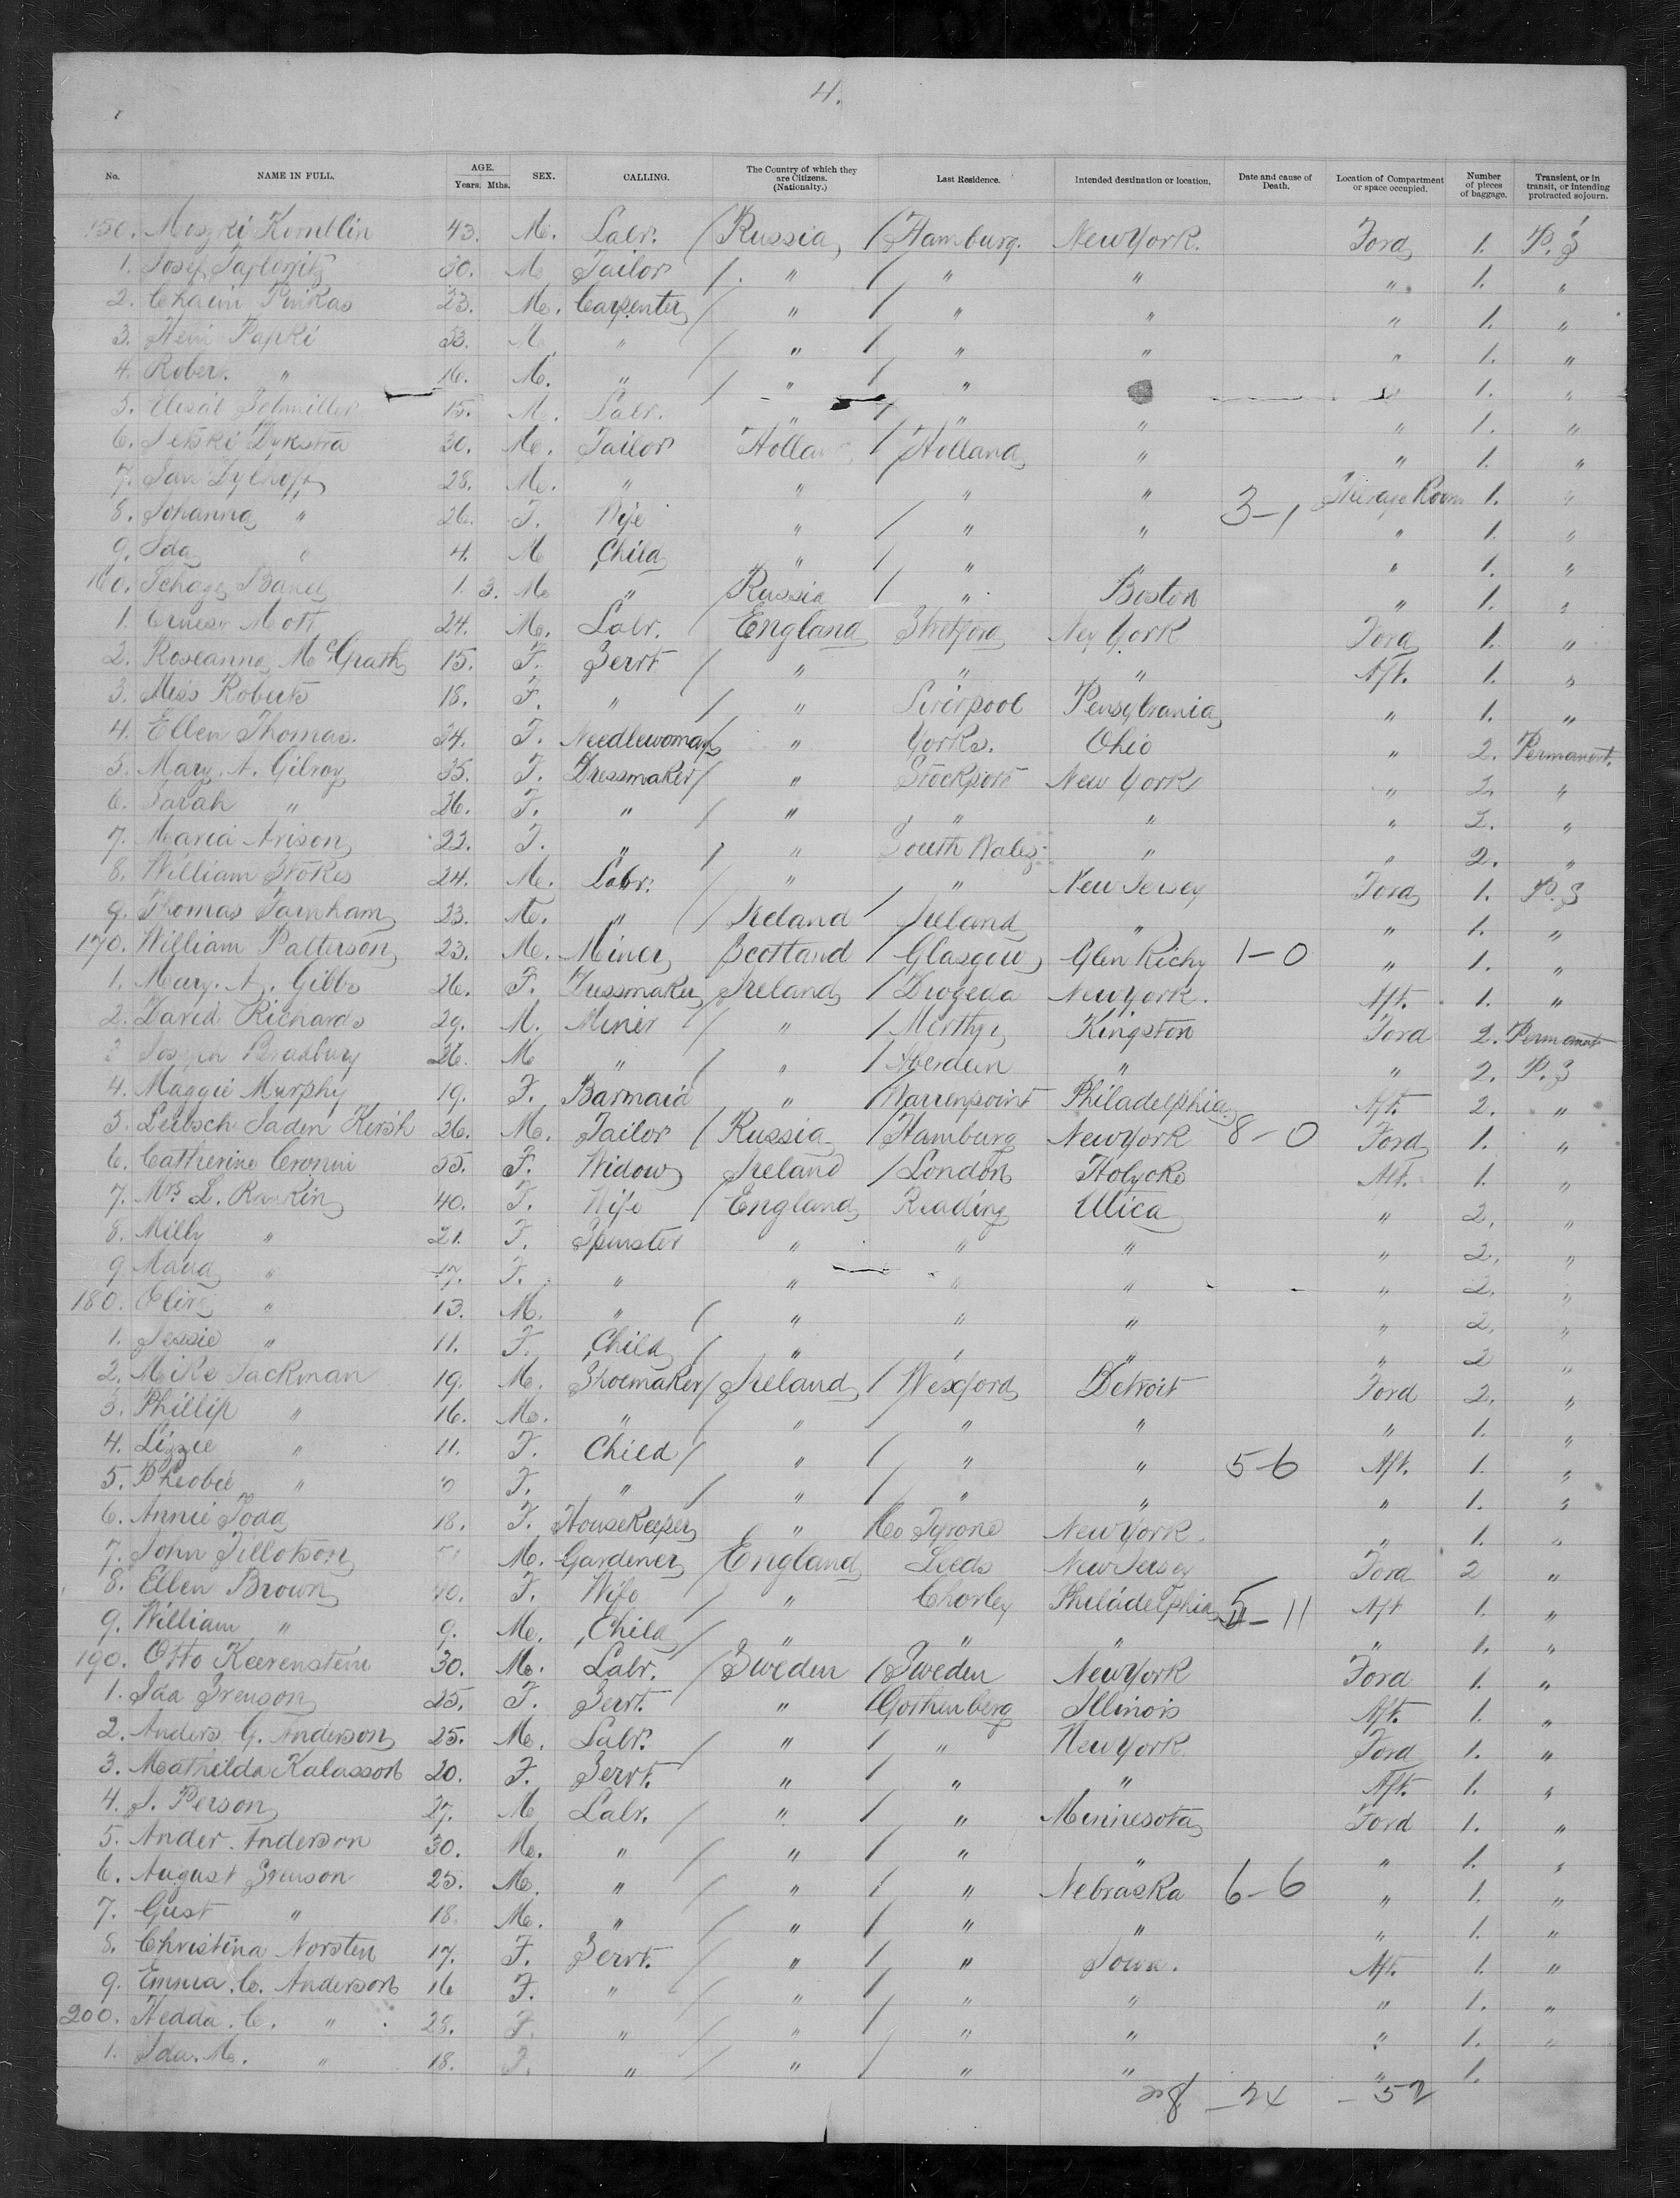 4.
No. NAME IN FULL. AGE. Years. Mths. SEX. CALLING. The Country of which they are Citizens. (Nationality.) Last Residence. Intended destination or location. Date and cause of Death. Location of Compartment or space occupied. Number of pieces of baggage. Transient, or in transit, or intending protracted sojourn.
150. Moszki Komblin 43. M. Labr. / Russia / Hamburg. New York. Ford 1. P.S
1. 30. M Tailor / " / " " " 1. "
2. Chaim Pinkas 23. M. Carpenter / " / " " " 1. "
3. Papki 33. M. " / " / " " " 1. "
4. Rober. " 16. M. " / " / " " 1. "
5. 15. M. Labr. " / " " " 1. "
6. Dykstra 30. M. Tailor Holland / Holland " " 1. "
7. Jan 28. M. " " " " 3-1 Steerage Room 1. "
8. Johanna " 26. F. Wife " / " " " 1. "
9. Ida " 4. M Child " / " " 1. "
160. 1. 3. M. " Russia / " Boston " 1. "
1. Ernest Mott 24. M. Labr. England New York Ford 1. "
2. Roseanna McGrath 15. F. Servt / " " " Aft. 1. "
3. Miss Roberts 18. F. " / " Liverpool Pensylvania " 1. "
4. Ellen Thomas. 34. F. Needlewoman / " Yorks. Ohio " 2. Permanent.
5. Mary. A. Gilroy 35. F. Dressmaker / " Stockport New York " 2. "
6. Sarah " 26. F. " / " " " " 2. "
7. Maria Arison 22. F. " / " South Wales " " 2. "
8. William Stokes 24. M. Labr. / " " New Jersey Ford 1. P.S
9. Thomas Farnham 23. M. " / Ireland / Ireland " " 1. "
170. William Patterson 23. M. Miner Scotland / Glasgow Glen Richy 1-0 " 1. "
1. Mary. A. Gibbs 26. F. Dressmaker Ireland / Drogeda New York. Aft. 1. "
2. David Richards 29. M. Miner / " / Merthyr Kingston Ford 2. Permanent
3 Joseph Bradbury 26. M " / " / Aberdeen " " 2. P.S
4. Maggie Murphy 19. F. Barmaid " / Warrenpoint Philadelphia Aft. 2. "
5. Leibsch Saden Kirsh 26. M. Tailor / Russia / Hamburg New York 8-0 Ford 1. "
6. Catherine Cronin 55. F. Widow Ireland / London Holyoke Aft. 1. "
7. Mrs L. Rankin 40. F. Wife / England Reading Utica " 2. "
8. Milly " 21. F. Spinster " " " " 2. "
9 Maud " 17. F. " " " " " 2. "
180. Olive " 13. M. " / " " " " 2. "
1. Jessie " 11. F. Child / " " " " 2 "
2. Mike Jackman 19. M. Shoemaker / Ireland / Wexford Detroit Ford 2. "
3. Phillip " 16. M. " / " / " " " 1. "
4. Lizzie " 11. F. Child / " / " " 5-6 Aft. 1. "
5. Pheobe " F. " / " / " " " 1. "
6. Annie Todd 18. F. Housekeeper " / Co Tyrone New York. " 1. "
7. John Tillotson M. Gardener England Leeds New Jersey Ford 2 "
8. Ellen Brown 40. F. Wife / " Chorley Philadelphia 5-11 Aft 1. "
9. William " 9. M. Child / " " " " 1. "
190. Otto Keerenstein 30. M. Labr. / Sweden / Sweden New York Ford 1. "
1. Ida Svenson 25. F. Servt. " / Gothenberg Illinois Aft. 1. "
2. Anders. G. Anderson 25. M. Labr. / " / " New York. Ford 1. "
3. Mathilda Kalasson 20. F. Servt. " / " " Aft. 1. "
4. J. Person 27. M Labr. / " / " Minnesota Ford 1. "
5. Ander. Anderson 30. M. " / " / " " " 1. "
6. August Svenson 25. M. " / " / " Nebraska 6-6 " 1. "
7. Gust " 18. M. " / " / " " " 1. "
8. Christina Norsten 17. F. Servt. / " / " Iowa. Aft. 1. "
9. Emma. C. Anderson 16 F. " / " / " " " 1. "
200. Hedda. C. " 28. F. " / " / " " " 1. "
1. Ida. M. " 18. F. " / " / " " " 1.
28 - 24 - 52